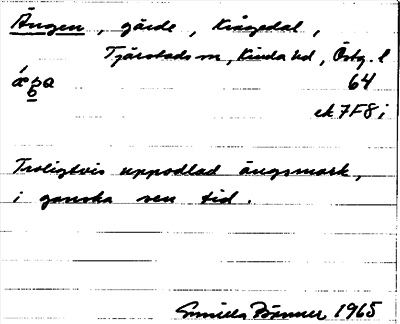 Ängen, gärde, Krågedal,
Tjärstads sn, Kinda hd, Östg. l
64
ek 7F8i
Troligtvis uppodlad ängsmark,
i ganska sen tid.
Gunilla 1965